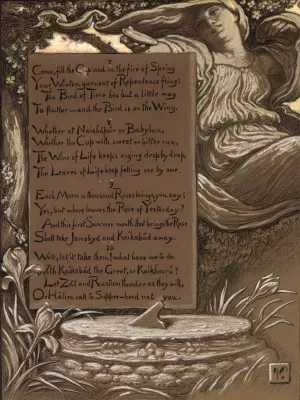 7
Come, fill the Cup, and in the fire of Spring
Your Winter-garment of Repentance fling:
The Bird of Time has but a little way
To flutter—and the Bird is on the Wing.
8
Whether at Naishápúr or Babylon,
Whether the Cup with sweet or bitter run,
The Wine of Life keeps oozing drop by drop,
The Leaves of Life keep falling one by one.
9
Each Morn a thousand Roses brings, you say;
Yes, but where leaves the Rose of Yesterday?
And this first Summer month that brings the Rose
Shall take Jamshyd and Kaikobád away.
10
Well, let it take them! What have we to do
With Kaikobád the Great, or Kaikhosrú?
Let Zál and Rustum thunder as they will,
Or Hátim call to Supper—heed not you.